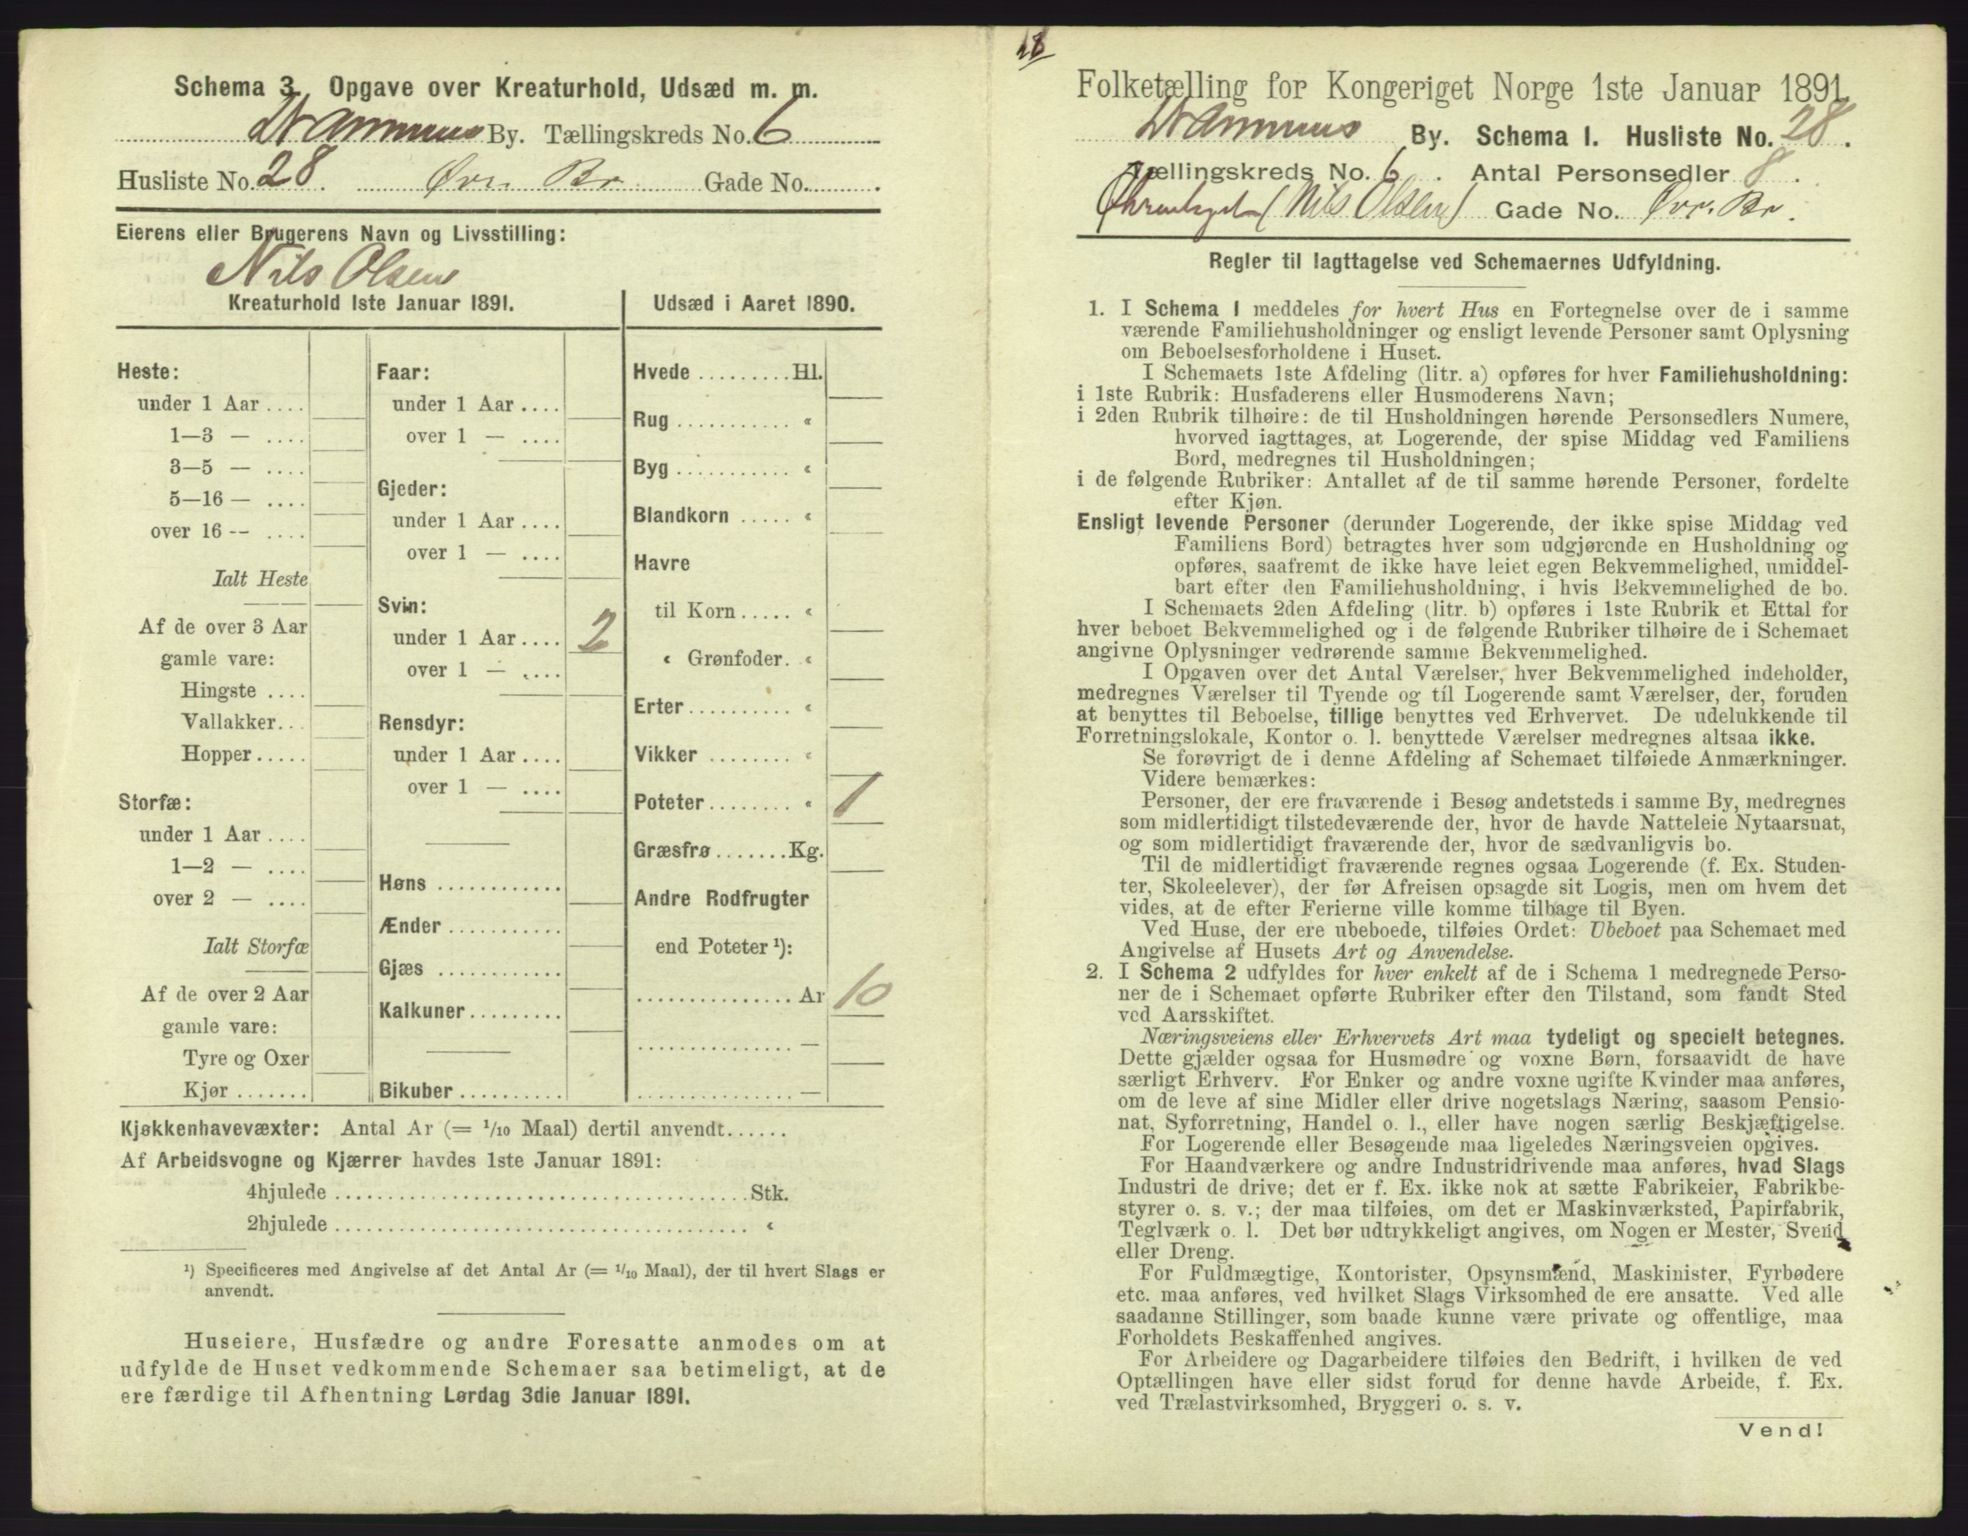 Schema 3. Opgave over Kreaturhold, Udsæd m. m.
Drammens By. Tællingskreds No. 6
Husliste No. 28. Øvr. Br Gade No. .
Eierens eller Brugerens Navn og Livsstilling:
Nils Olsen
Kreaturhold 1ste Januar 1891.
Heste:
under 1 Aar ....
1—3 — ....
3—5 — ....
5—16 — ....
over 16 -- ....
Ialt Heste
Af de over 3 Aar
gamle vare:
Hingste ....
Vallakker...
Hopper.....
Storfæ:
under 1 Aar ....
1—2 — ....
over 2 — ....
Ialt Storfæ
Af de over 2 Aar
gamle vare:
Tyre og Oxer
Kjør .......
Faar:
under 1 Aar ....
over 1 — ....
Gjeder:
under 1 Aar ....
over 1 — ....
Svin:
under 1 Aar .... 2
over 1 — ....
Rensdyr:
under 1 Aar ....
over 1 — ....
Høns ...........
Ænder ..........
Gjæs ...........
Kalkuner........
Bikuber.........
Udsæd i Aaret 1890.
Hvede .........Hl.
Rug ........... «
Byg ........... «
Blandkorn ..... «
Havre
til Korn ..... «
« Grønfoder. «
Erter.......... «
Vikker ........ «
Poteter........ « 1
Græsfrø .......Kg.
Andre Rodfrugter
end Poteter ¹):
............... Ar 10
............... —
............... —
Kjøkkenhavevæxter: Antal Ar (= 1/10 Maal) dertil anvendt......
Af Arbeidsvogne og Kjærrer havdes 1ste Januar 1891:
4hjulede ........................................Stk.
2hjulede ........................................ «
¹) Specificeres med Angivelse af det Antal Ar (= 1/10 Maal), der til hvert Slags er
anvendt.
Huseiere, Husfædre og andre Foresatte anmodes om at
udfylde de Huset vedkommende Schemaer saa betimeligt, at de
ere færdige til Afhentning Lørdag 3die Januar 1891.
28
Folketælling for Kongeriget Norge 1ste Januar 1891.
Drammens By. Schema I. Husliste No. 28.
Tællingskreds No. 6. Antal Personsedler 8.
(Nils Olsen) Gade No. Øvr. Br.
Regler til Iagttagelse ved Schemaernes Udfyldning.
1. I Schema 1 meddeles for hvert Hus en Fortegnelse over de i samme
værende Familiehusholdninger og ensligt levende Personer samt Oplysning
om Beboelsesforholdene i Huset.
I Schemaets 1ste Afdeling (litr. a) opføres for hver Familiehusholdning:
i 1ste Rubrik: Husfaderens eller Husmoderens Navn;
i 2den Rubrik tilhøire: de til Husholdningen hørende Personsedlers Numere,
hvorved iagttages, at Logerende, der spise Middag ved Familiens
Bord, medregnes til Husholdningen;
i de følgende Rubriker: Antallet af de til samme hørende Personer, fordelte
efter Kjøn.
Ensligt levende Personer (derunder Logerende, der ikke spise Middag ved
Familiens Bord) betragtes hver som udgjørende en Husholdning og
opføres, saafremt de ikke have leiet egen Bekvemmelighed, umiddel-
bart efter den Familiehusholdning, i hvis Bekvemmelighed de bo.
I Schemaets 2den Afdeling (litr. b) opføres i 1ste Rubrik et Ettal for
hver beboet Bekvemmelighed og i de følgende Rubriker tilhøire de i Schemaet
angivne Oplysninger vedrørende samme Bekvemmelighed.
I Opgaven over det Antal Værelser, hver Bekvemmelighed indeholder,
medregnes Værelser til Tyende og til Logerende samt Værelser, der, foruden
at benyttes til Beboelse, tillige benyttes ved Erhvervet. De udelukkende til
Forretningslokale, Kontor o. l. benyttede Værelser medregnes altsaa ikke.
Se forøvrigt de i denne Afdeling af Schemaet tilføiede Anmærkninger.
Videre bemærkes:
Personer, der ere fraværende i Besøg andetsteds i samme By, medregnes
som midlertidigt tilstedeværende der, hvor de havde Natteleie Nytaarsnat,
og som midlertidigt fraværende der, hvor de sædvanligvis bo.
Til de midlertidigt fraværende regnes ogsaa Logerende (f. Ex. Studen-
ter, Skoleelever), der før Afreisen opsagde sit Logis, men om hvem det
vides, at de efter Ferierne ville komme tilbage til Byen.
Ved Huse, der ere ubeboede, tilføies Ordet: Ubeboet paa Schemaet med
Angivelse af Husets Art og Anvendelse.
2. I Schema 2 udfyldes for hver enkelt af de i Schema 1 medregnede Perso-
ner de i Schemaet opførte Rubriker efter den Tilstand, som fandt Sted
ved Aarsskiftet.
Næringsveiens eller Erhvervets Art maa tydeligt og specielt betegnes.
Dette gjælder ogsaa for Husmødre og voxne Børn, forsaavidt de have
særligt Erhverv. For Enker og andre voxne ugifte Kvinder maa anføres,
om de leve af sine Midler eller drive nogetslags Næring, saasom Pensio-
nat, Syforretning, Handel o. l., eller have nogen særlig Beskjæftigelse.
For Logerende eller Besøgende maa ligeledes Næringsveien opgives.
For Haandværkere og andre Industridrivende maa anføres, hvad Slags
Industri de drive; det er f. Ex. ikke nok at sætte Fabrikeier, Fabrikbe-
styrer o. s. v.; der maa tilføies, om det er Maskinværksted, Papirfabrik,
Teglværk o. l. Det bør udtrykkeligt angives, om Nogen er Mester, Svend
eller Dreng.
For Fuldmægtige, Kontorister, Opsynsmænd, Maskinister, Fyrbødere
etc. maa anføres, ved hvilket Slags Virksomhed de ere ansatte. Ved alle
saadanne Stillinger, som baade kunne være private og offentlige, maa
Forholdets Beskaffenhed angives.
For Arbeidere og Dagarbeidere tilføies den Bedrift, i hvilken de ved
Optællingen have eller sidst forud for denne havde Arbeide, f. Ex.
ved Trælastvirksomhed, Bryggeri o. s. v.
Vend!